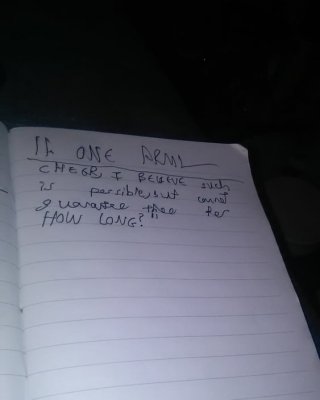 IF ONE ARM
CHEGR I BELIEVE such
is possible, but cannot
guarantee thee for
HOW LONG?"